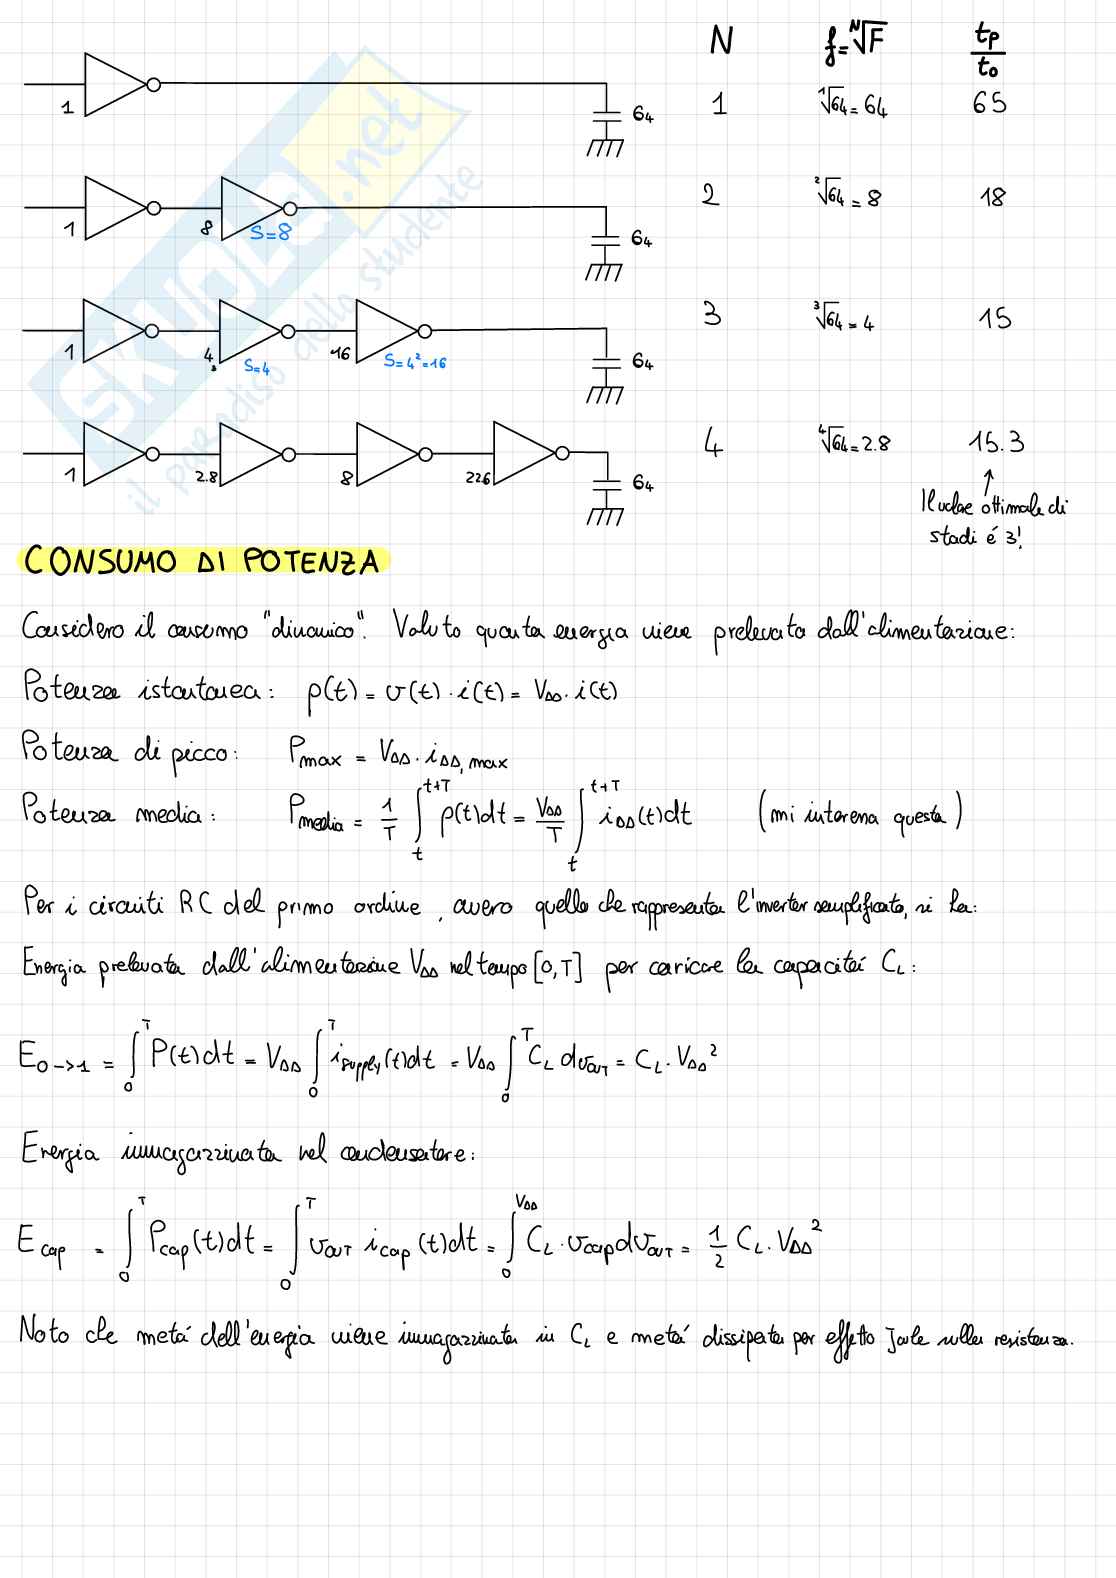 N f=ᴺ√F tp/t0
1 64 1 ¹√64 = 64 65
1 8 S=8 64 2 ²√64 = 8 18
1 4 S=4 16 S=4²=16 64 3 ³√64 = 4 15
1 2.8 8 22.6 64 4 ⁴√64 = 2.8 15.3
Il valore ottimale di
stadi é 3!
CONSUMO DI POTENZA
Considero il consumo "dinamico". Valuto quanta energia viene prelevata dall'alimentazione:
Potenza istantanea: p(t) = v(t) · i(t) = VDD · i(t)
Potenza di picco: Pmax = VDD · iDD,max
Potenza media: Pmedia = 1/T ∫_t^{t+T} p(t)dt = VDD/T ∫_t^{t+T} iDD(t)dt (mi interessa questa)
Per i circuiti RC del primo ordine, ovvero quello che rappresenta l'inverter semplificato, si ha:
Energia prelevata dall'alimentazione VDD nel tempo [0,T] per caricare la capacitá CL:
E0->1 = ∫_0^T P(t)dt = VDD ∫_0^T isupply(t)dt = VDD ∫_0^T CL dvOUT = CL · VDD²
Energia immagazzinata nel condensatore:
Ecap = ∫_0^T Pcap(t)dt = ∫_0^T vOUT icap(t)dt = ∫_0^{VDD} CL · vcap dvOUT = 1/2 CL · VDD²
Noto che metá dell'energia viene immagazzinata in CL e metá dissipata per effetto Joule sulla resistenza.
SKUOLA.net
il paradiso dello studente